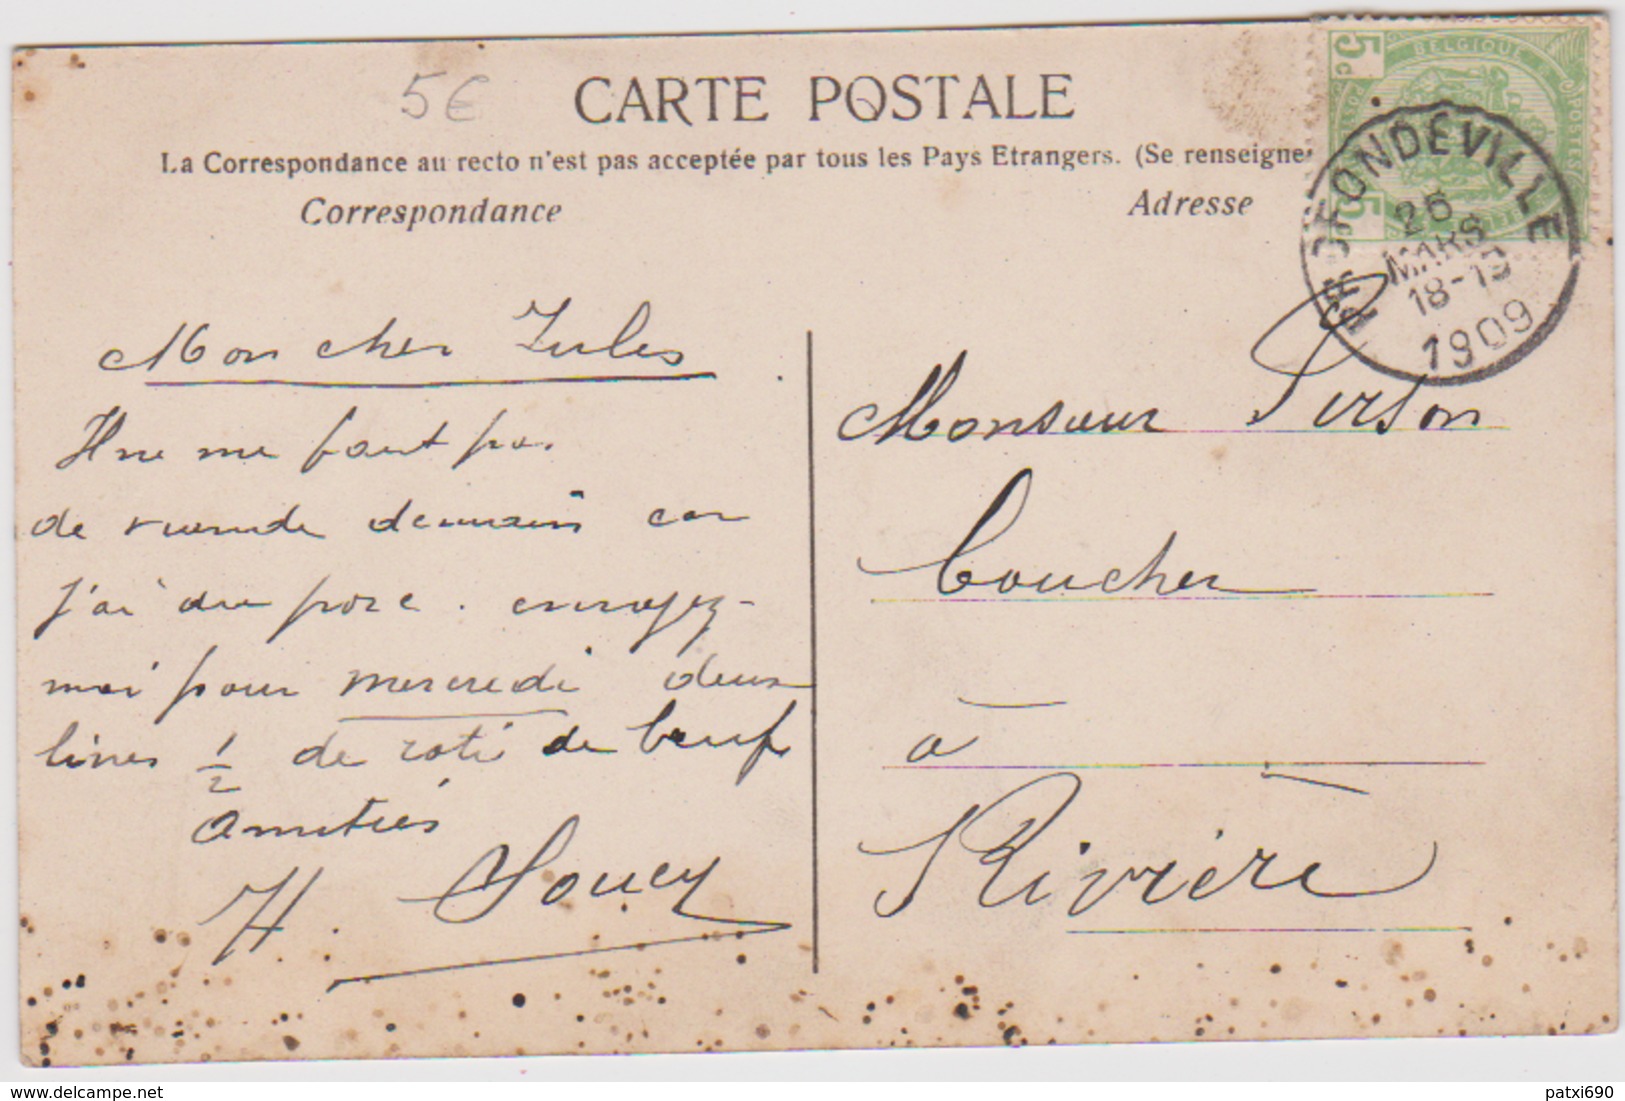 5€
CARTE POSTALE
La Correspondance au recto n'est pas acceptée par tous les Pays Etrangers. (Se renseigne
Correspondance
Adresse
5c BELGIQUE POSTES
PROFONDEVILLE
26
MARS
18-19
1909
Mon cher Jules
Il ne me faut pas
de viande demain car
j'ai du porc. envoyez-
moi pour mercredi deux
livres 1/2 de roti de bœuf
Amitiés
H. Soucy
Monsieur Pirson
Boucher
à
Rivière
delcampe.net
patxi690